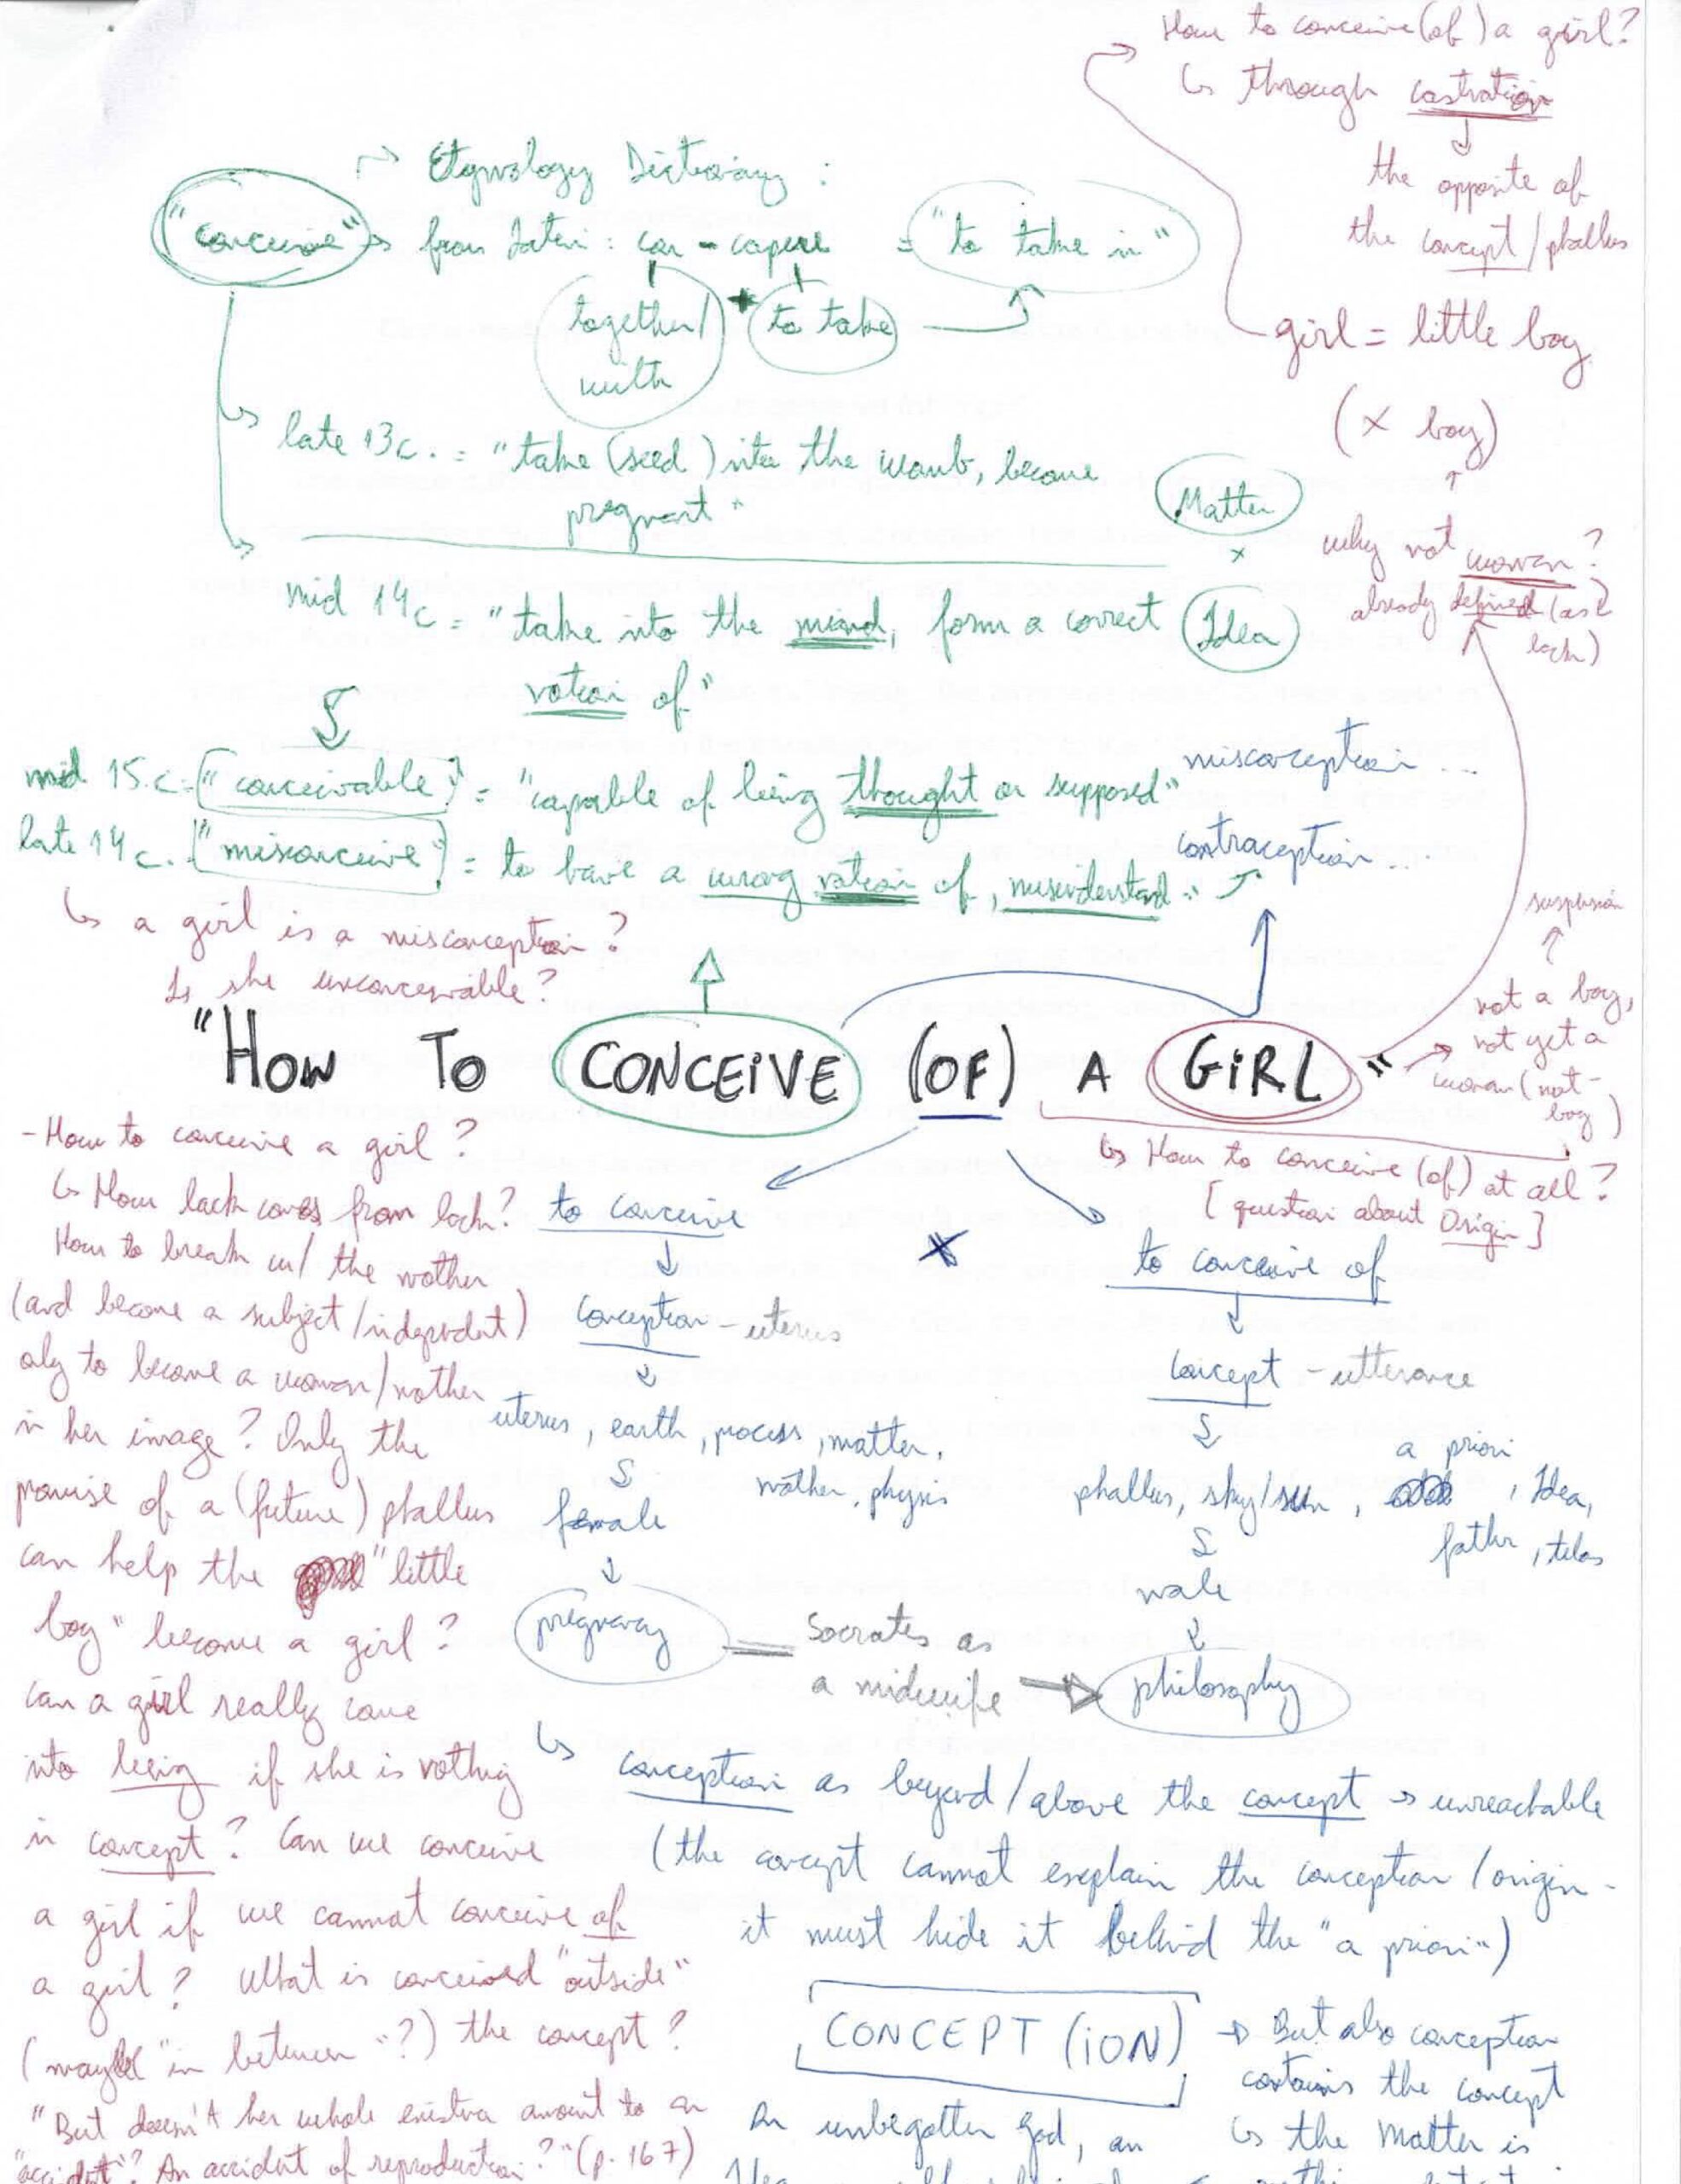 How to conceive (of) a girl?
↳ through castration
↓
the opposite of
the concept / phallus
girl = little boy
(x boy)
↑
why not woman?
already defined (as
lack)
Etymology Dictionary :
"conceive" → from Latin : con - capere = "to take in"
together/ + to take
with
late 13c. = "take (seed) into the womb, become
pregnant"
Matter
x
mid 14c = "take into the mind, form a correct Idea
notion of"
mid 15.c = "conceivable" = "capable of being thought or supposed"
late 14c. "misconceive" = to have a wrong notion of, misunderstand"
miscorception ...
contraception ...
↳ a girl is a misconception?
Is she unconceivable?
suspension
↑
not a boy,
not yet a
woman (not-
boy)
"HOW TO CONCEIVE (OF) A GiRL"
↳ How to conceive (of) at all?
[question about Origin]
- How to conceive a girl?
↳ How lack comes from lack?
How to break w/ the mother
(and become a subject/indepedent)
oly to become a woman/mother
in her image? Only the
promise of a (future) phallus
can help the "little
boy" become a girl?
Can a girl really come
into being if she is nothing
in concept? Can we conceive
a girl if we cannot conceive of
a girl? What is conceived "outside"
(maybe "in between"?) the concept?
"But doesn't her whole existence amount to an
"accident"? An accident of reproduction?" (p. 167)
to conceive
↓
conception - uterus
↓
uterus, earth, process, matter,
mother, physis
female
↓
pregnancy
x
to conceive of
↓
concept - utterance
a priori
phallus, sky/sun, , Idea,
father, telos
male
↓
philosophy
Socrates as
a midwife
↳ conception as beyond/above the concept → unreachable
(the concept cannot explain the conception / origin -
it must hide it behind the "a priori")
CONCEPT (iON) → But also conception
contains the concept
↳ the matter is
An unbegotten God, an